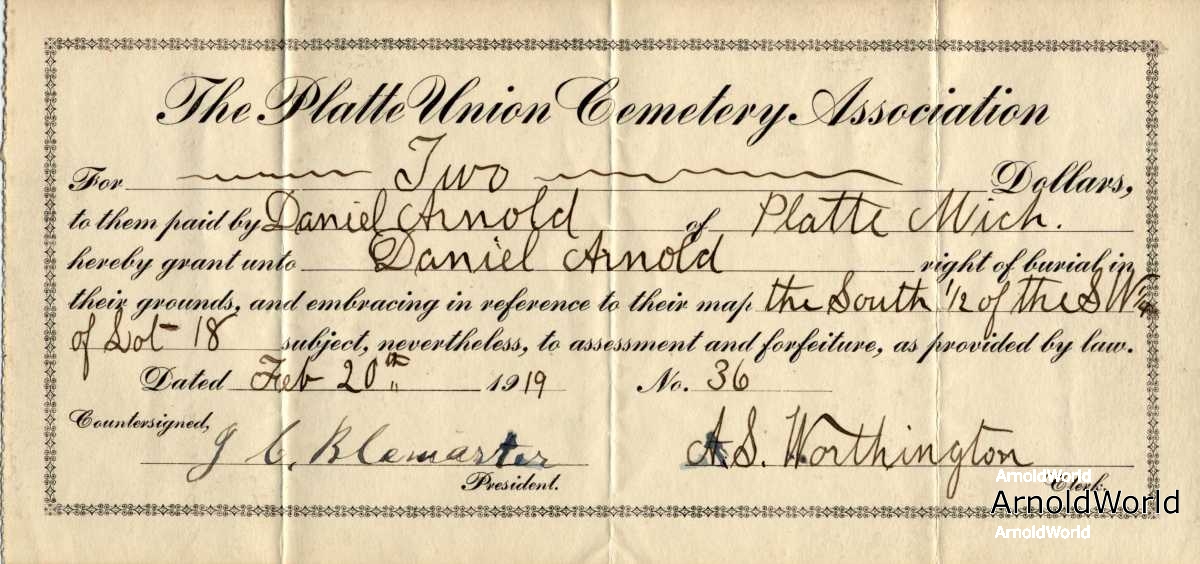 The Platte Union Cemetery Association
For Two Dollars,
to them paid by Daniel Arnold of Platte Mich.
hereby grant unto Daniel Arnold right of burial in
their grounds, and embracing in reference to their map the South 1/2 of the S W 1/4
of Lot 18 subject, nevertheless, to assessment and forfeiture, as provided by law.
Dated Feb 20th 1919 No. 36
Countersigned,
A. S. Worthington
President. Clerk.
ArnoldWorld
ArnoldWorld
ArnoldWorld